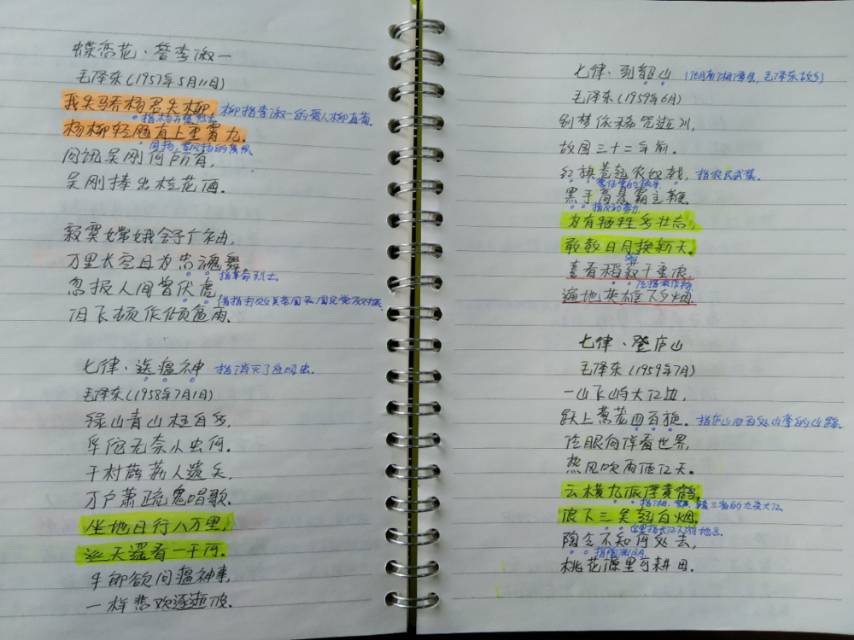 蝶恋花·答李淑一
毛泽东(1957年5月11日)
我失骄杨君失柳, 柳指李淑一的爱人柳直荀.
杨柳轻飏直上重霄九.
问讯吴刚何所有,
吴刚捧出桂花酒.
寂寞嫦娥舒广袖,
万里长空且为忠魂舞
指革命烈士.
忽报人间曾伏虎,
泪飞顿作倾盆雨.
七律·送瘟神 指消灭了血吸虫.
毛泽东(1958年7月1日)
绿水青山枉自多,
华佗无奈小虫何.
千村薜荔人遗矢,
万户萧疏鬼唱歌.
坐地日行八万里,
巡天遥看一千河.
牛郎欲问瘟神事,
一样悲欢逐逝波.
七律·到韶山
毛泽东(1959年6月)
别梦依稀咒逝川,
故园三十二年前.
红旗卷起农奴戟, 指农民武装.
黑手高悬霸主鞭.
为有牺牲多壮志,
敢教日月换新天.
喜看稻菽千重浪,
遍地英雄下夕烟.
七律·登庐山
毛泽东(1959年7月)
一山飞峙大江边,
跃上葱茏四百旋.
冷眼向洋看世界,
热风吹雨洒江天.
云横九派浮黄鹤,
浪下三吴起白烟.
陶令不知何处去,
桃花源里可耕田.